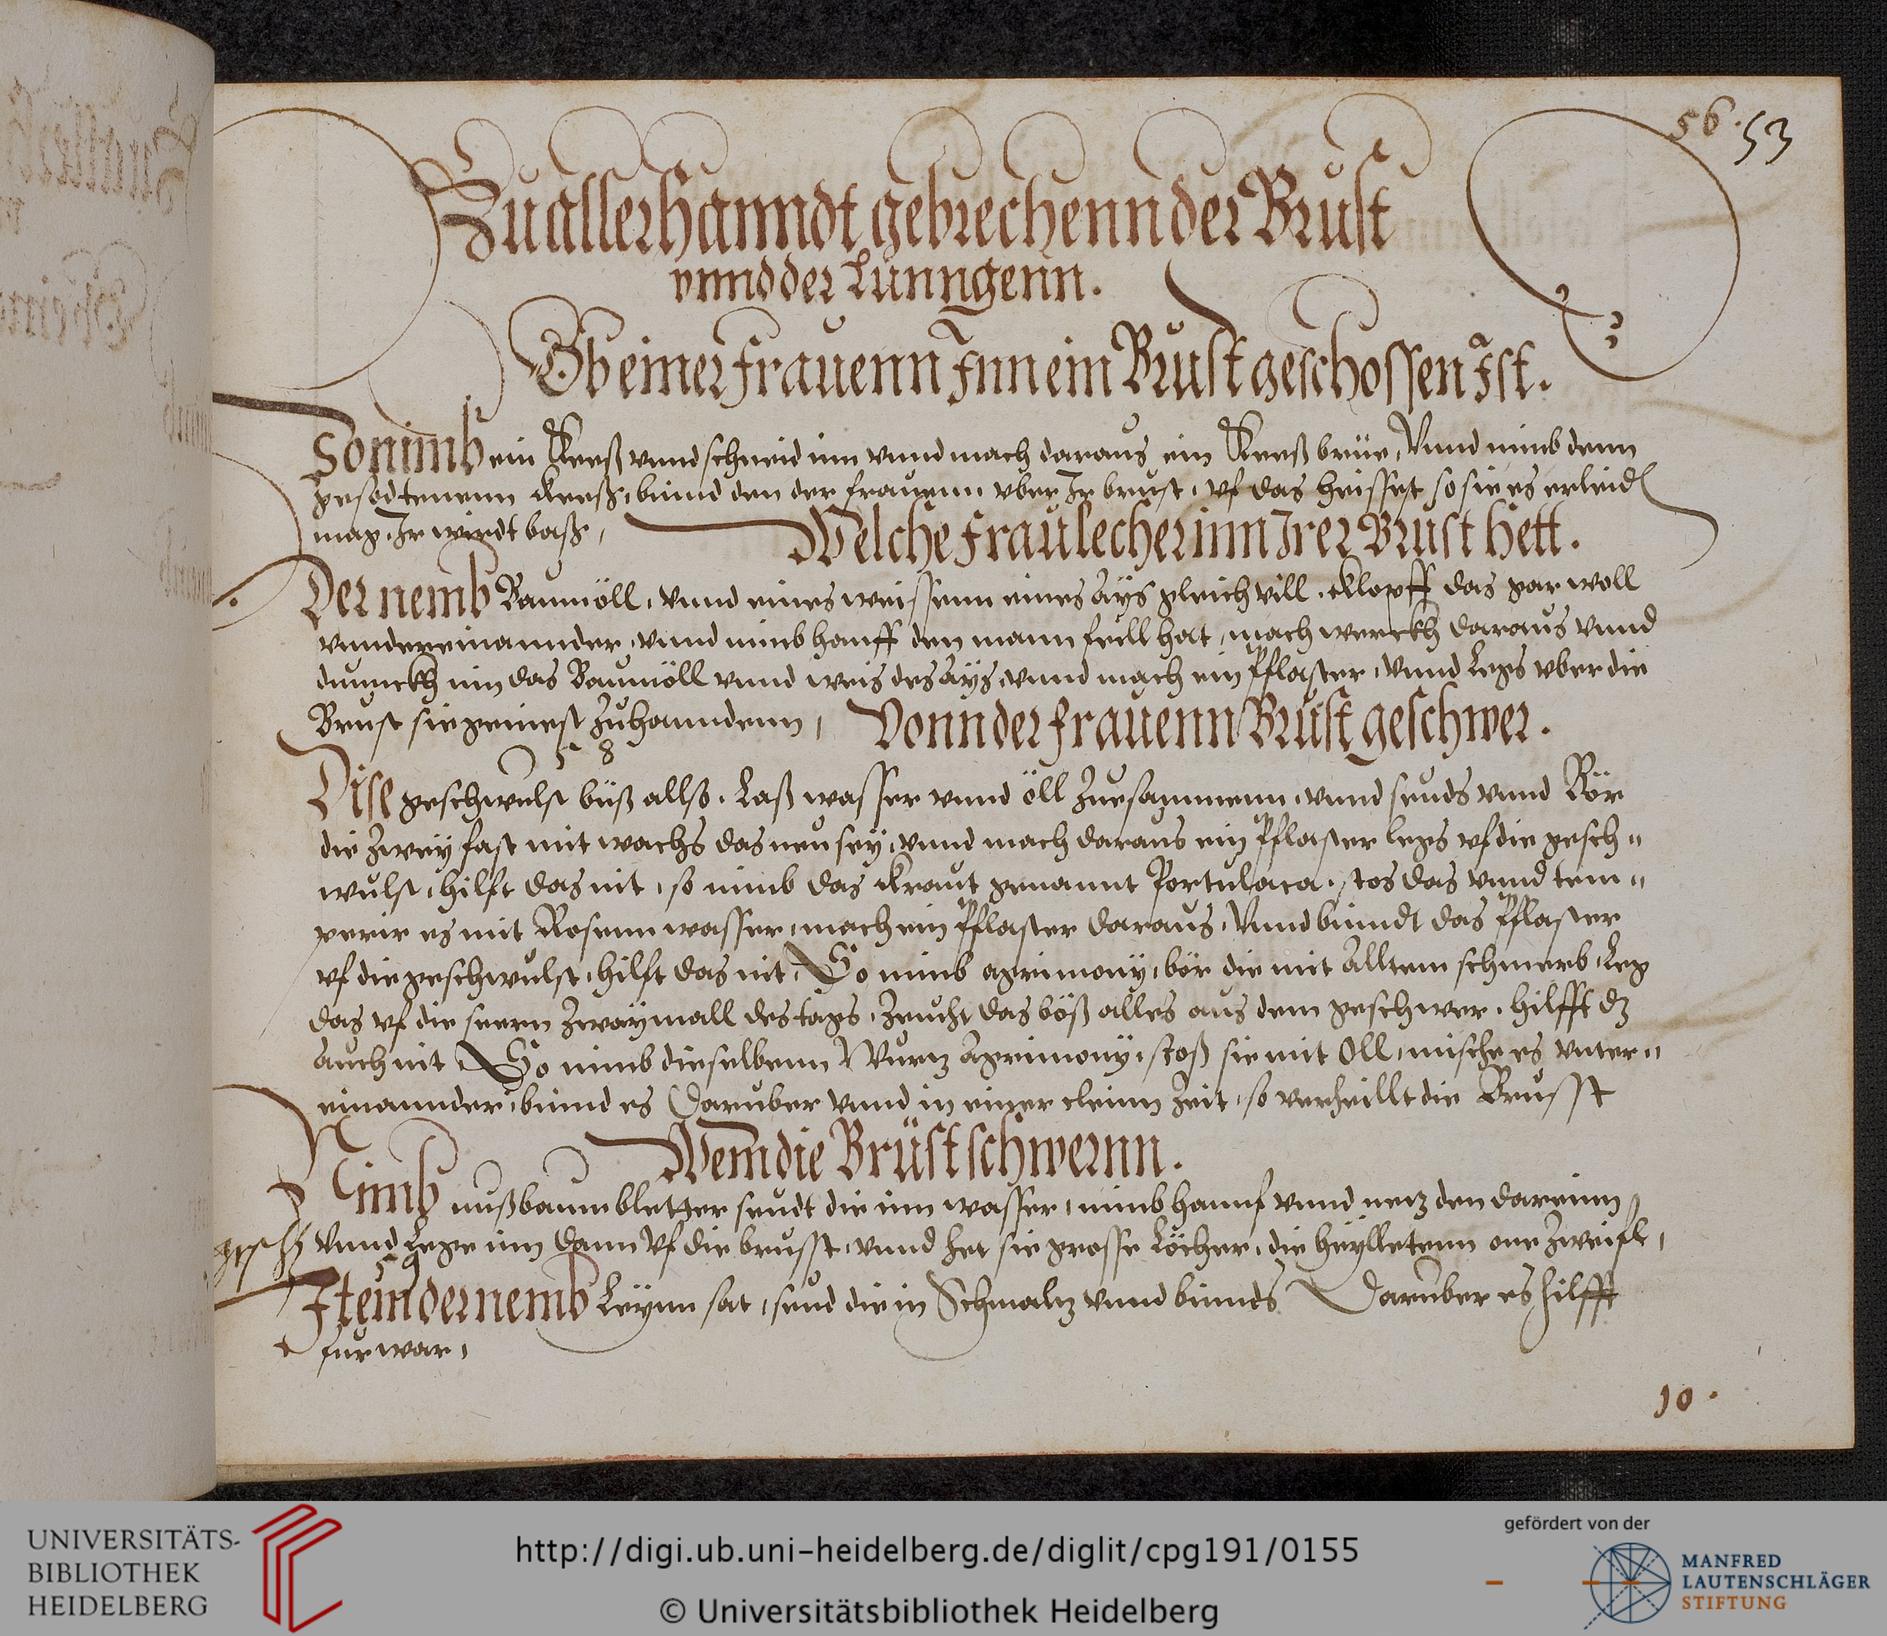 56. 53
Zu allerhanndt gebrechenn der Brust
vnnd der Lunngenn.
Ob einer frauenn Jnn ein Brust geschossen Jst.
So nimb ein Kreß vnnd schneid inn vnnd mach daraus ein Kreß brüe, Vnnd nimb denn
gesodtenenn kreß, bünd den der frauenn vber Jr brust, vf das heissest so sie es erleiden
mag, Jr wirdt baß,
Welche frau lecher inn Jrer Brust hett.
Der nemb Baumöll, vnnd eines weissenn eines Ays gleich vill, klopff das gar woll
vnndereinannder, vnnd nimb hanff den mann feill hat, mach werckh daraus vnnd
dunnckh inn das Baumöll vnnd weis des Ays, vnnd mach ein Pflaster, vnnd legs vber die
Brust sie geniest zuhanndenn,
Vonn der frauenn Brust geschwer.
58
Dise geschwulst büß allso, Laß wasser vnnd öll zuesammenn, vnnd seuds vnnd Rör
die zwey fast mit wachs das neu sey, vnnd mach daraus ein Pflaster legs vf die gesch-
wulst, hilft das nit, so nimb das kraut genannt Portulaca, stos das vnnd tem-
perir es mit Rosennwasser, mach ein Pflaster daraus, Vnnd bünndt das Pflaster
vf die geschwulst, hilft das nit, So nimb agrimony, bör die mit Alltem schmerb, Leg
das vf die seern zwaymall des tags, zeucht das böß alles aus dem geschwer, hilfft dz
auch nit So nimb dieselbenn Wurtz Agrimony, stoß sie mit Öll, mische es vnter-
einannder, bünnd es daruber vnnd in einer cleinn Zeit, so verheillt die Brusst
Wem die Brüst schwernn.
Nimb nußbaum bletter seudt die inn wasser, nimb hannf vnnd netz den dareinn
vnnd Lege inn dann vf die brusst, vnnd het sie grosse Löcher, die heylletenn one zweifl,
59
Item der nemb Leynn sat, seud die in Schmaltz vnnd binnds daruber es hilfft
furwar,
10.
UNIVERSITÄTS-
BIBLIOTHEK
HEIDELBERG
http://digi.ub.uni-heidelberg.de/diglit/cpg191/0155
© Universitätsbibliothek Heidelberg
gefördert von der
MANFRED
LAUTENSCHLÄGER
STIFTUNG